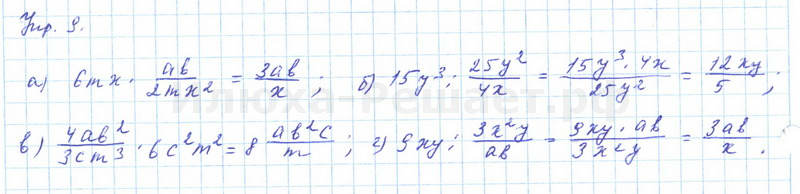 Упр. 9.
а) 6mx · ab/2mx² = 3ab/x ; б) 15y³ : 25y²/4x = 15y³ · 4x/25y² = 12xy/5 ;
в) 4ab²/3cm³ · 6c²m² = 8 ab²c/m ; г) 9xy : 3x²y/ab = 9xy · ab/3x²y = 3ab/x .
илюха-решает.рф